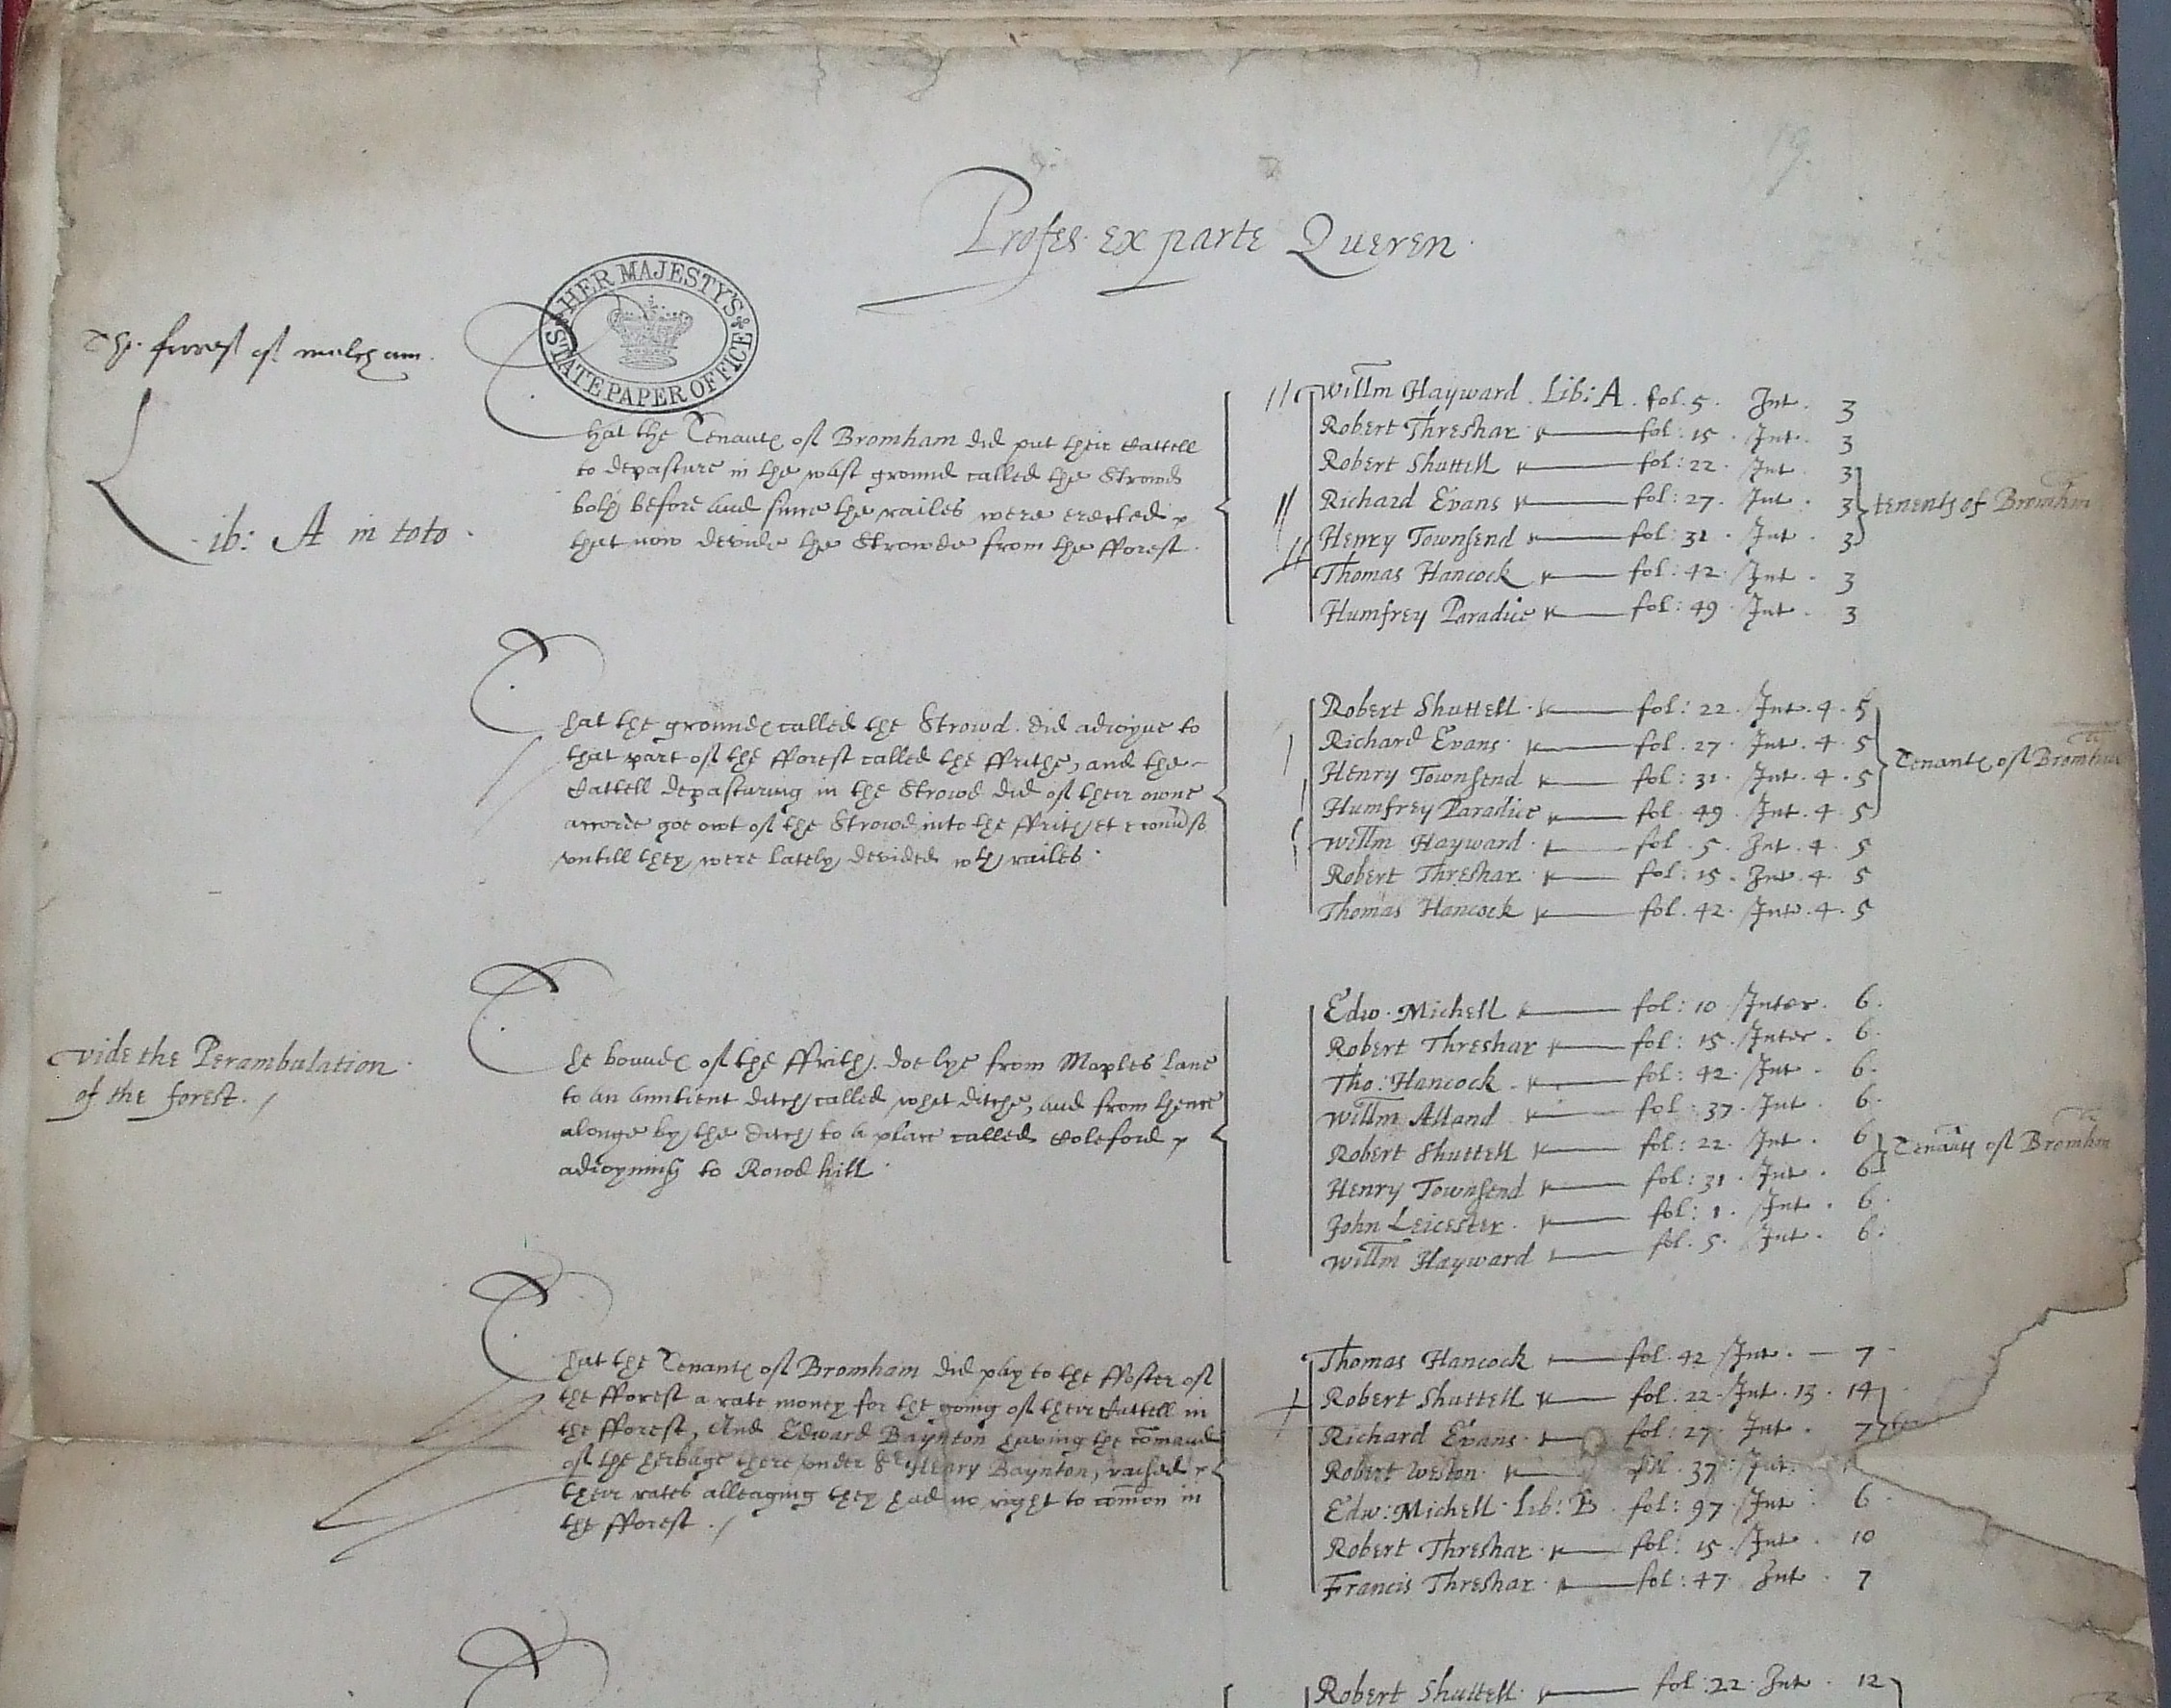 19.
Profes ex parte Queren
HER MAJESTY'S
STATE PAPER OFFICE
The forrest of melcham.
Lib: A in toto.
That the Tenantes of Bromham did put their Cattell
to depasture in the wast ground called the Strowd
both before and since the railes were erected
that now devide the Strowde from the fforest.
Willm Hayward. Lib: A. fol. 5. Int. 3
Robert Threshar fol: 15. Int. 3
Robert Shuttell fol: 22. Int 3
Richard Evans fol: 27. Int. 3
Henry Townsend fol: 31. Int. 3
Thomas Hancock fol: 42. Int. 3
Humfrey Paradice fol: 49. Int. 3
tenents of Bromham
That the grounde called the Strowd. did adioyne to
that part of the fforest called the ffrithe, and the
Cattell depasturing in the Strowd did of their owne
accorde goe owt of the Strowd into the ffrith, et e
untill they were lately devided wth railes.
Robert Shuttell. fol: 22. Int. 4. 5
Richard Evans. fol. 27. Int. 4. 5
Henry Townsend fol: 31. Int. 4. 5
Humfrey Paradice fol. 49. Int. 4. 5
Willm Hayward. fol. 5. Int. 4. 5
Robert Threshar. fol: 15. Int. 4. 5
Thomas Hancock fol. 42. Int. 4. 5
Tenantes of Bromham
vide the Perambulation
of the forest. /
The boundes of the ffrith. doe lye from Maples Lane
to an auntient ditch called whit ditche, and from thence
alonge by the ditch to a place called Coleford
adioyning to Rowd hill.
Edw. Michell fol: 10 Inter. 6.
Robert Threshar fol: 15. Inter. 6.
Tho: Hancock. fol: 42. Int. 6.
Willm Alland fol: 37. Int. 6.
Robert Shuttell fol: 22. Int. 6
Henry Townsend fol: 31. Int. 6
John Leicester. fol: 1. Int. 6
Willm Hayward fol. 5. Int. 6.
Tenants of Bromham
That the Tenantes of Bromham did pay to the ffoster of
the fforest a rate money for the going of their Cattell in
the fforest, And Edward Baynton having the comand
of the herbage there under Sr Henry Baynton, raised
their rates alleaging they had no right to comon in
the fforest. /
Thomas Hancock fol. 42 Int. — 7
Robert Shuttell fol: 22. Int. 13. 14
Richard Evans. fol: 27. Int. 7
Robert Weston. fol. 37. Int.
Edw: Michell. Lib: B. fol: 97. Int: 6.
Robert Threshar. fol: 15. Int. 10
Francis Threshar. fol: 47. Int. 7
Robert Shuttell. fol: 22. Int. 12